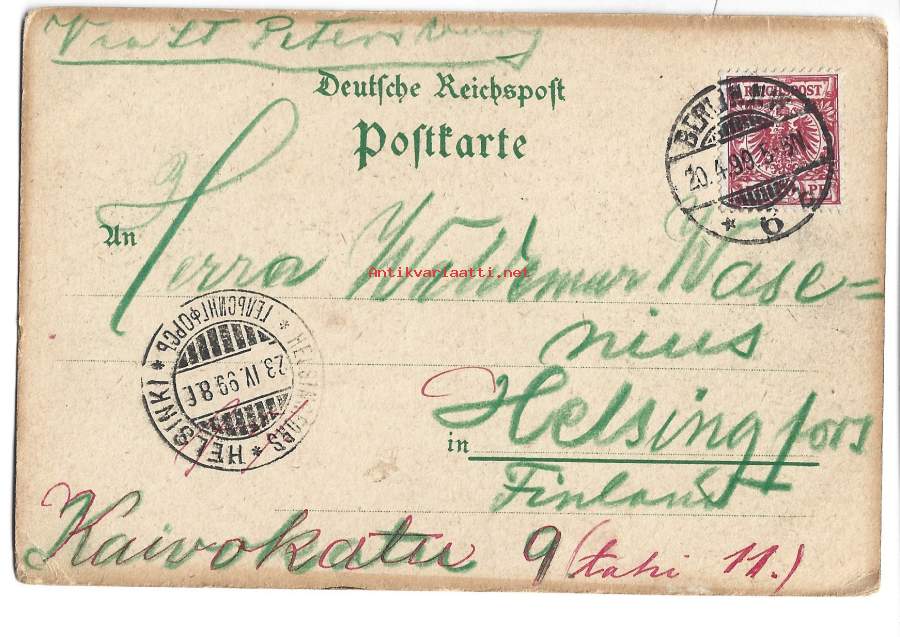 Via St Petersburg
Deutsche Reichspost
Postkarte
REICHSPOST
PF
BERLIN
20.4.99
An
Herra Waldemar Wase=
nius
Antikvariaatti.net
ГЕЛЬСИНГФОРСЪ * HELSINGFORS * HELSINKI *
23.IV.99.8
in Helsingfors
Finland
Kaivokatu 9 (tahi 11.)